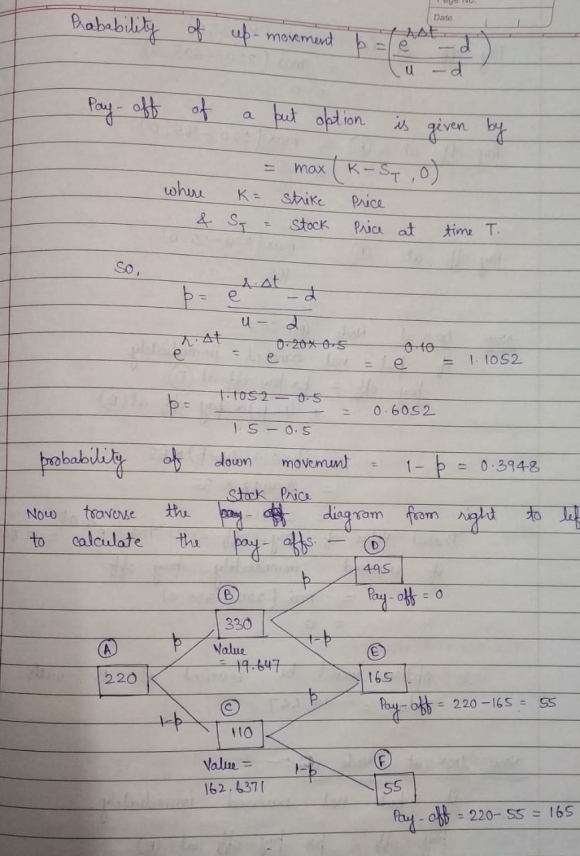 Page No.
Date
Probability of up-movement p = (e^{r.Δt} - d / u - d)
Pay-off of a put option is given by
= max (K - S_T, 0)
where K = Strike Price
& S_T = Stock Price at time T.
So,
p = e^{r.Δt} - d / u - d
e^{r.Δt} = e^{0.20×0.5} = e^{0.10} = 1.1052
p = 1.1052 - 0.5 / 1.5 - 0.5 = 0.6052
probability of down movement = 1 - p = 0.3948
Stock Price
Now traverse the diagram from right to lef
to calculate the pay-offs. —
D
495
Pay-off = 0
p
B
330
Value
= 19.647
1-p
A
220
p
E
165
Pay-off = 220-165 = 55
p
1-p
C
110
Value =
162.6371
1-p
F
55
Pay-off = 220-55 = 165